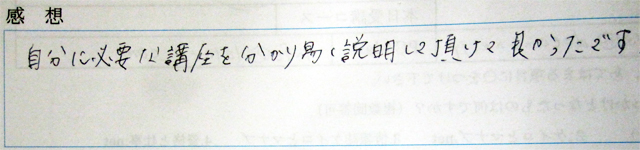 感想
自分に必要な講座を分かり易く説明して頂けて良かったです